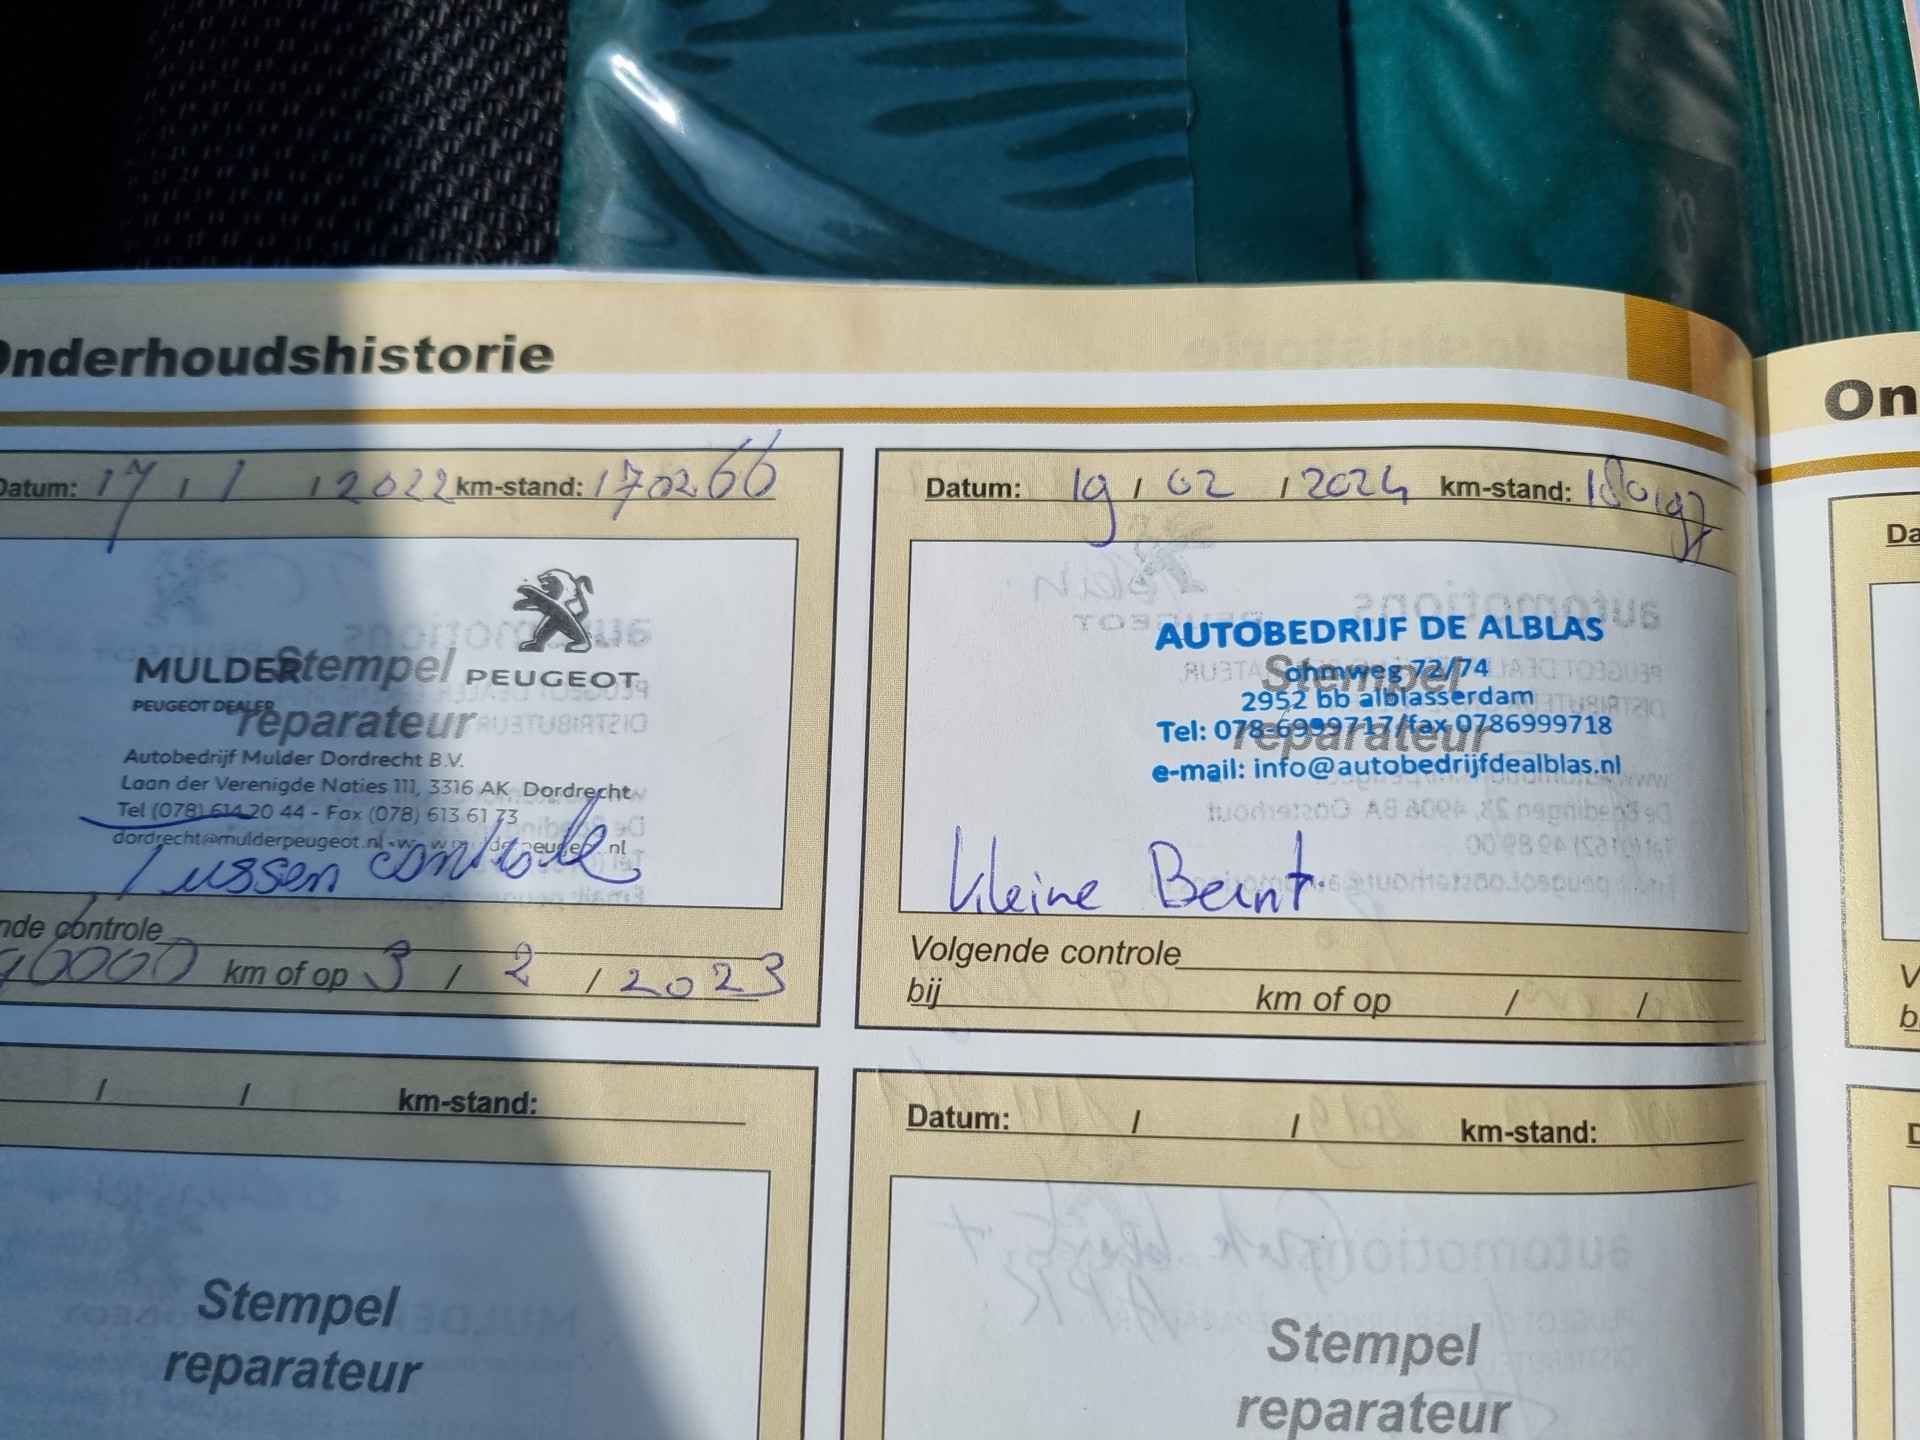 Onderhoudshistorie
On
Datum: 17 / 1 / 2022 km-stand: 170266
MULDER
PEUGEOT DEALER
PEUGEOT
Stempel
reparateur
Autobedrijf Mulder Dordrecht B.V.
Laan der Verenigde Naties 111, 3316 AK Dordrecht
Tel (078) 614 20 44 - Fax (078) 613 61 73
dordrecht@mulderpeugeot.nl
Tussen controle
nde controle
90000 km of op 3 / 2 / 2023
/ / km-stand:
Stempel
reparateur
Datum: 19 / 02 / 2024 km-stand:
AUTOBEDRIJF DE ALBLAS
Stempel
ohmweg 72/74
2952 bb alblasserdam
reparateur
Tel: 078-6999717/fax 0786999718
e-mail: info@autobedrijfdealblas.nl
kleine Beurt.
Volgende controle
bij km of op / /
Datum: / / km-stand:
Stempel
reparateur
Da
V
b
D